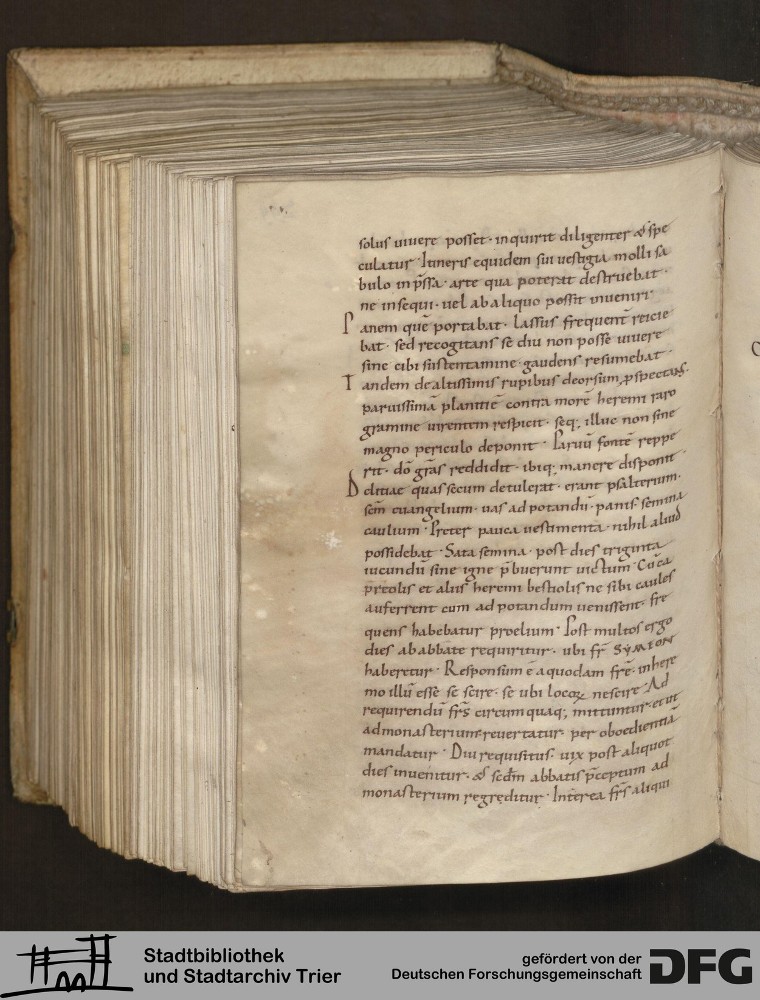 solus uiuere posset · inquirit diligenter & spe
culatur · Itineris equidem sui uestigia molli sa
bulo inp̄ssa · arte qua poterat destruebat ·
ne insequi · uel ab aliquo possit inueniri ·
Panem quē portabat · lassus frequent̄ reicie
bat · sed recogitans se diu non posse uiuere
sine cibi sustentamine · gaudens resumebat ·
Tandem de altissimis rupibus deorsum ꝓspectans ·
paruissimā planitiē contra morē heremi raro
gramine uirentem respicit · seq; illuc non sine
magno periculo deponit · Paruū fontē reppe
rit · dō grās reddidit · ibiq; manere disponit
Diuitiae quas secum detulerat · erant psalterium ·
sc̄m euangelium · uas ad potandū · panis semina
caulium · Preter pauca uestimenta · nihil aliud
possidebat · Sata semina · post dies triginta
iucundū sine igne p̄buerunt uictum · Cū ca
preolis et aliis heremi bestiolis ne sibi caules
auferrent cum ad potandum uenissent · fre
quens habebatur proelium · Post multos ergo
dies ab abbate requiritur · ubi fr̄ SYMEON
haberetur · Responsum ē a quodam fr̄e · in here
mo illū esse se scire · se ubi locoꝝ nescire · Ad
requirendū fr̄s circumquaq; mittuntur · et ut
ad monasterium reuertatur · per oboedientiā
mandatur · Diu requisitus · uix post aliquot
dies inuenitur · & scd̄m abbatis p̄ceptum ad
monasterium regreditur · Interea fr̄s aliqui
Stadtbibliothek
und Stadtarchiv Trier
gefördert von der
Deutschen Forschungsgemeinschaft
DFG